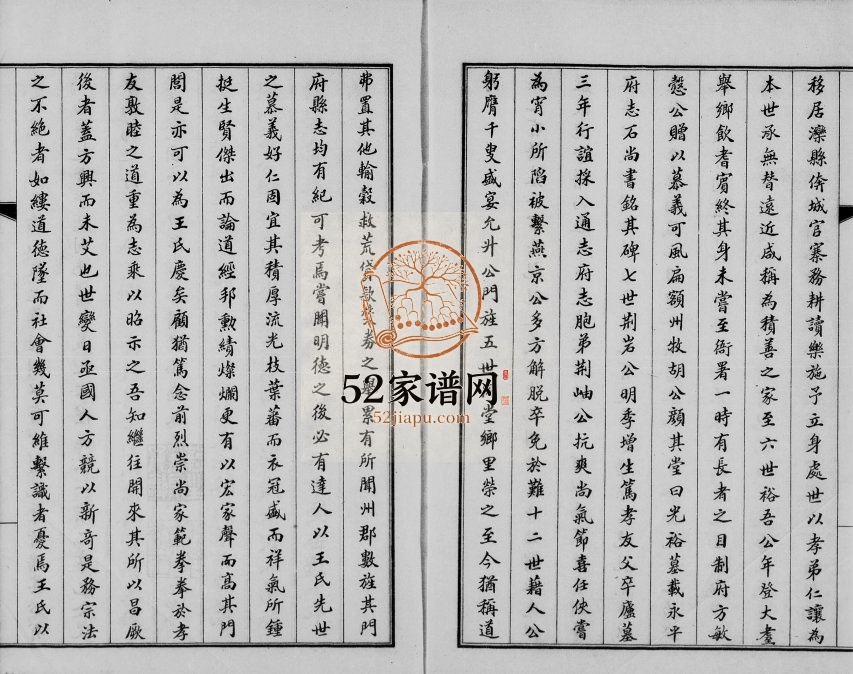 移居灤縣倚城官寨務耕讀樂施予立身處世以孝弟仁讓為
本世承無替遠近咸稱為積善之家至六世裕吾公年登大耋
舉鄉飲耆賓終其身未嘗至衙署一時有長者之目制府方敏
愨公贈以慕義可風扁額州牧胡公顏其堂曰光裕墓載永平
府志石尚書銘其碑七世荊岩公明季增生篤孝友父卒廬墓
三年行誼採入通志府志胞弟荊岫公抗爽尚氣節喜任俠嘗
為宵小所陷被繫燕京公多方解脫卒免於難十二世藉人公
躬膺千叟盛宴允升公門旌五世堂鄉里榮之至今猶稱道
弗置其他輸穀救荒貸款券之舉累有所聞州郡數旌其門
府縣志均有紀可考焉嘗聞明德之後必有達人以王氏先世
之慕義好仁固宜其積厚流光枝葉蕃而衣冠盛而祥氣所鍾
挺生賢傑出而論道經邦勳績燦爛更有以宏家聲而高其門
閭是亦可以為王氏慶矣顧猶篤念前烈崇尚家範拳拳於孝
友敦睦之道重為志乘以昭示之吾知繼往開來其所以昌厥
後者蓋方興而未艾也世變日亟國人方競以新奇是務宗法
之不絕者如縷道德墜而社會幾莫可維繫識者憂焉王氏以
52家谱网
52jiapu.com